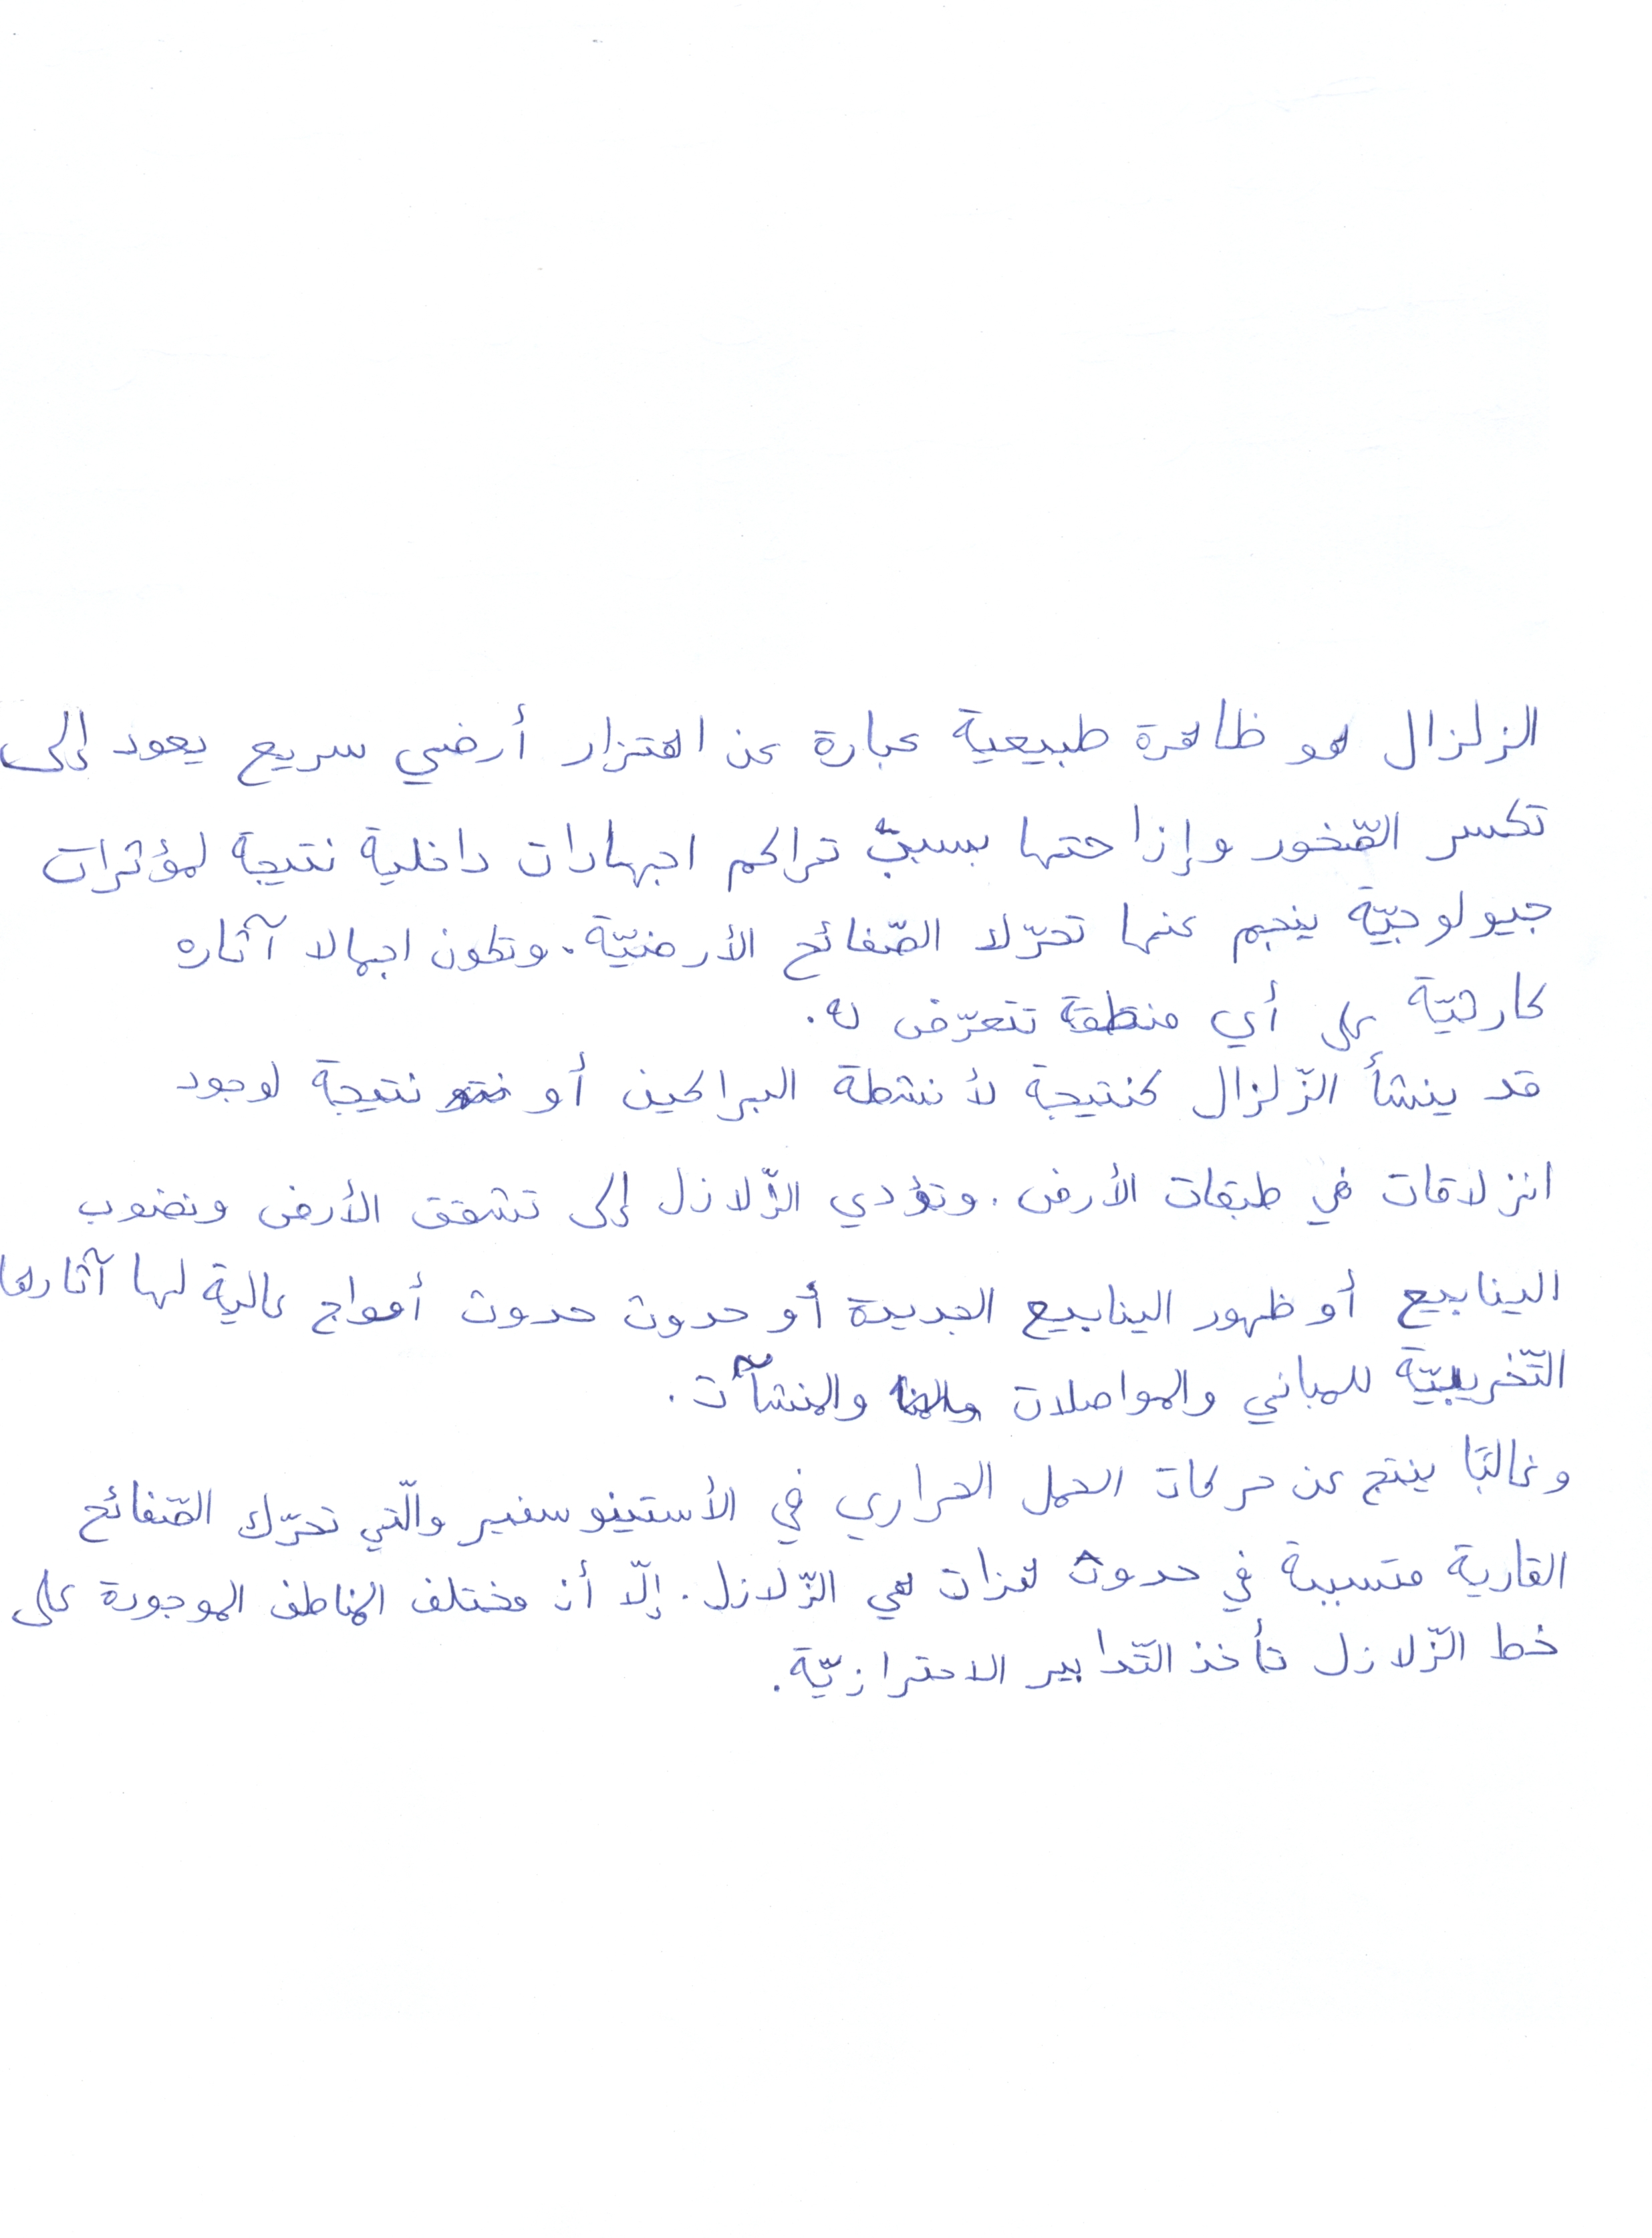 الزلزال هو ظاهرة طبيعية عبارة عن اهتزار أرضي سريع يعود إلى
تكسر الصّخور وإزاحتها بسبب تراكم اجهادات داخلية نتيجة لمؤثرات
جيولوجيّة ينجم عنها تحرّك الصّفائح الأرضيّة. وتكون اجمالا آثاره
كارثيّة على أي منطقة تتعرّض له.
قد ينشأ الزّلزال كنتيجة لأنشطة البراكين أو نتيجة لوجود
انزلاقات في طبقات الأرض. وتؤدي الزّلازل إلى تشقق الأرض ونضوب
الينابيع أو ظهور الينابيع الجديدة أو حدوث حدوث أمواج عالية لها آثارها
التّخريبيّة للمباني والمواصلات والمنشآت.
وغالبًا ينتج عن حركات الحمل الحراري في الأستينوسفير والّتي تحرّك الصّفائح
القارية متسببة في حدوث هزات هي الزّلازل. إلّا أن مختلف المناطق الموجودة على
خط الزّلازل تأخذ التّدابير الاحترازيّة.